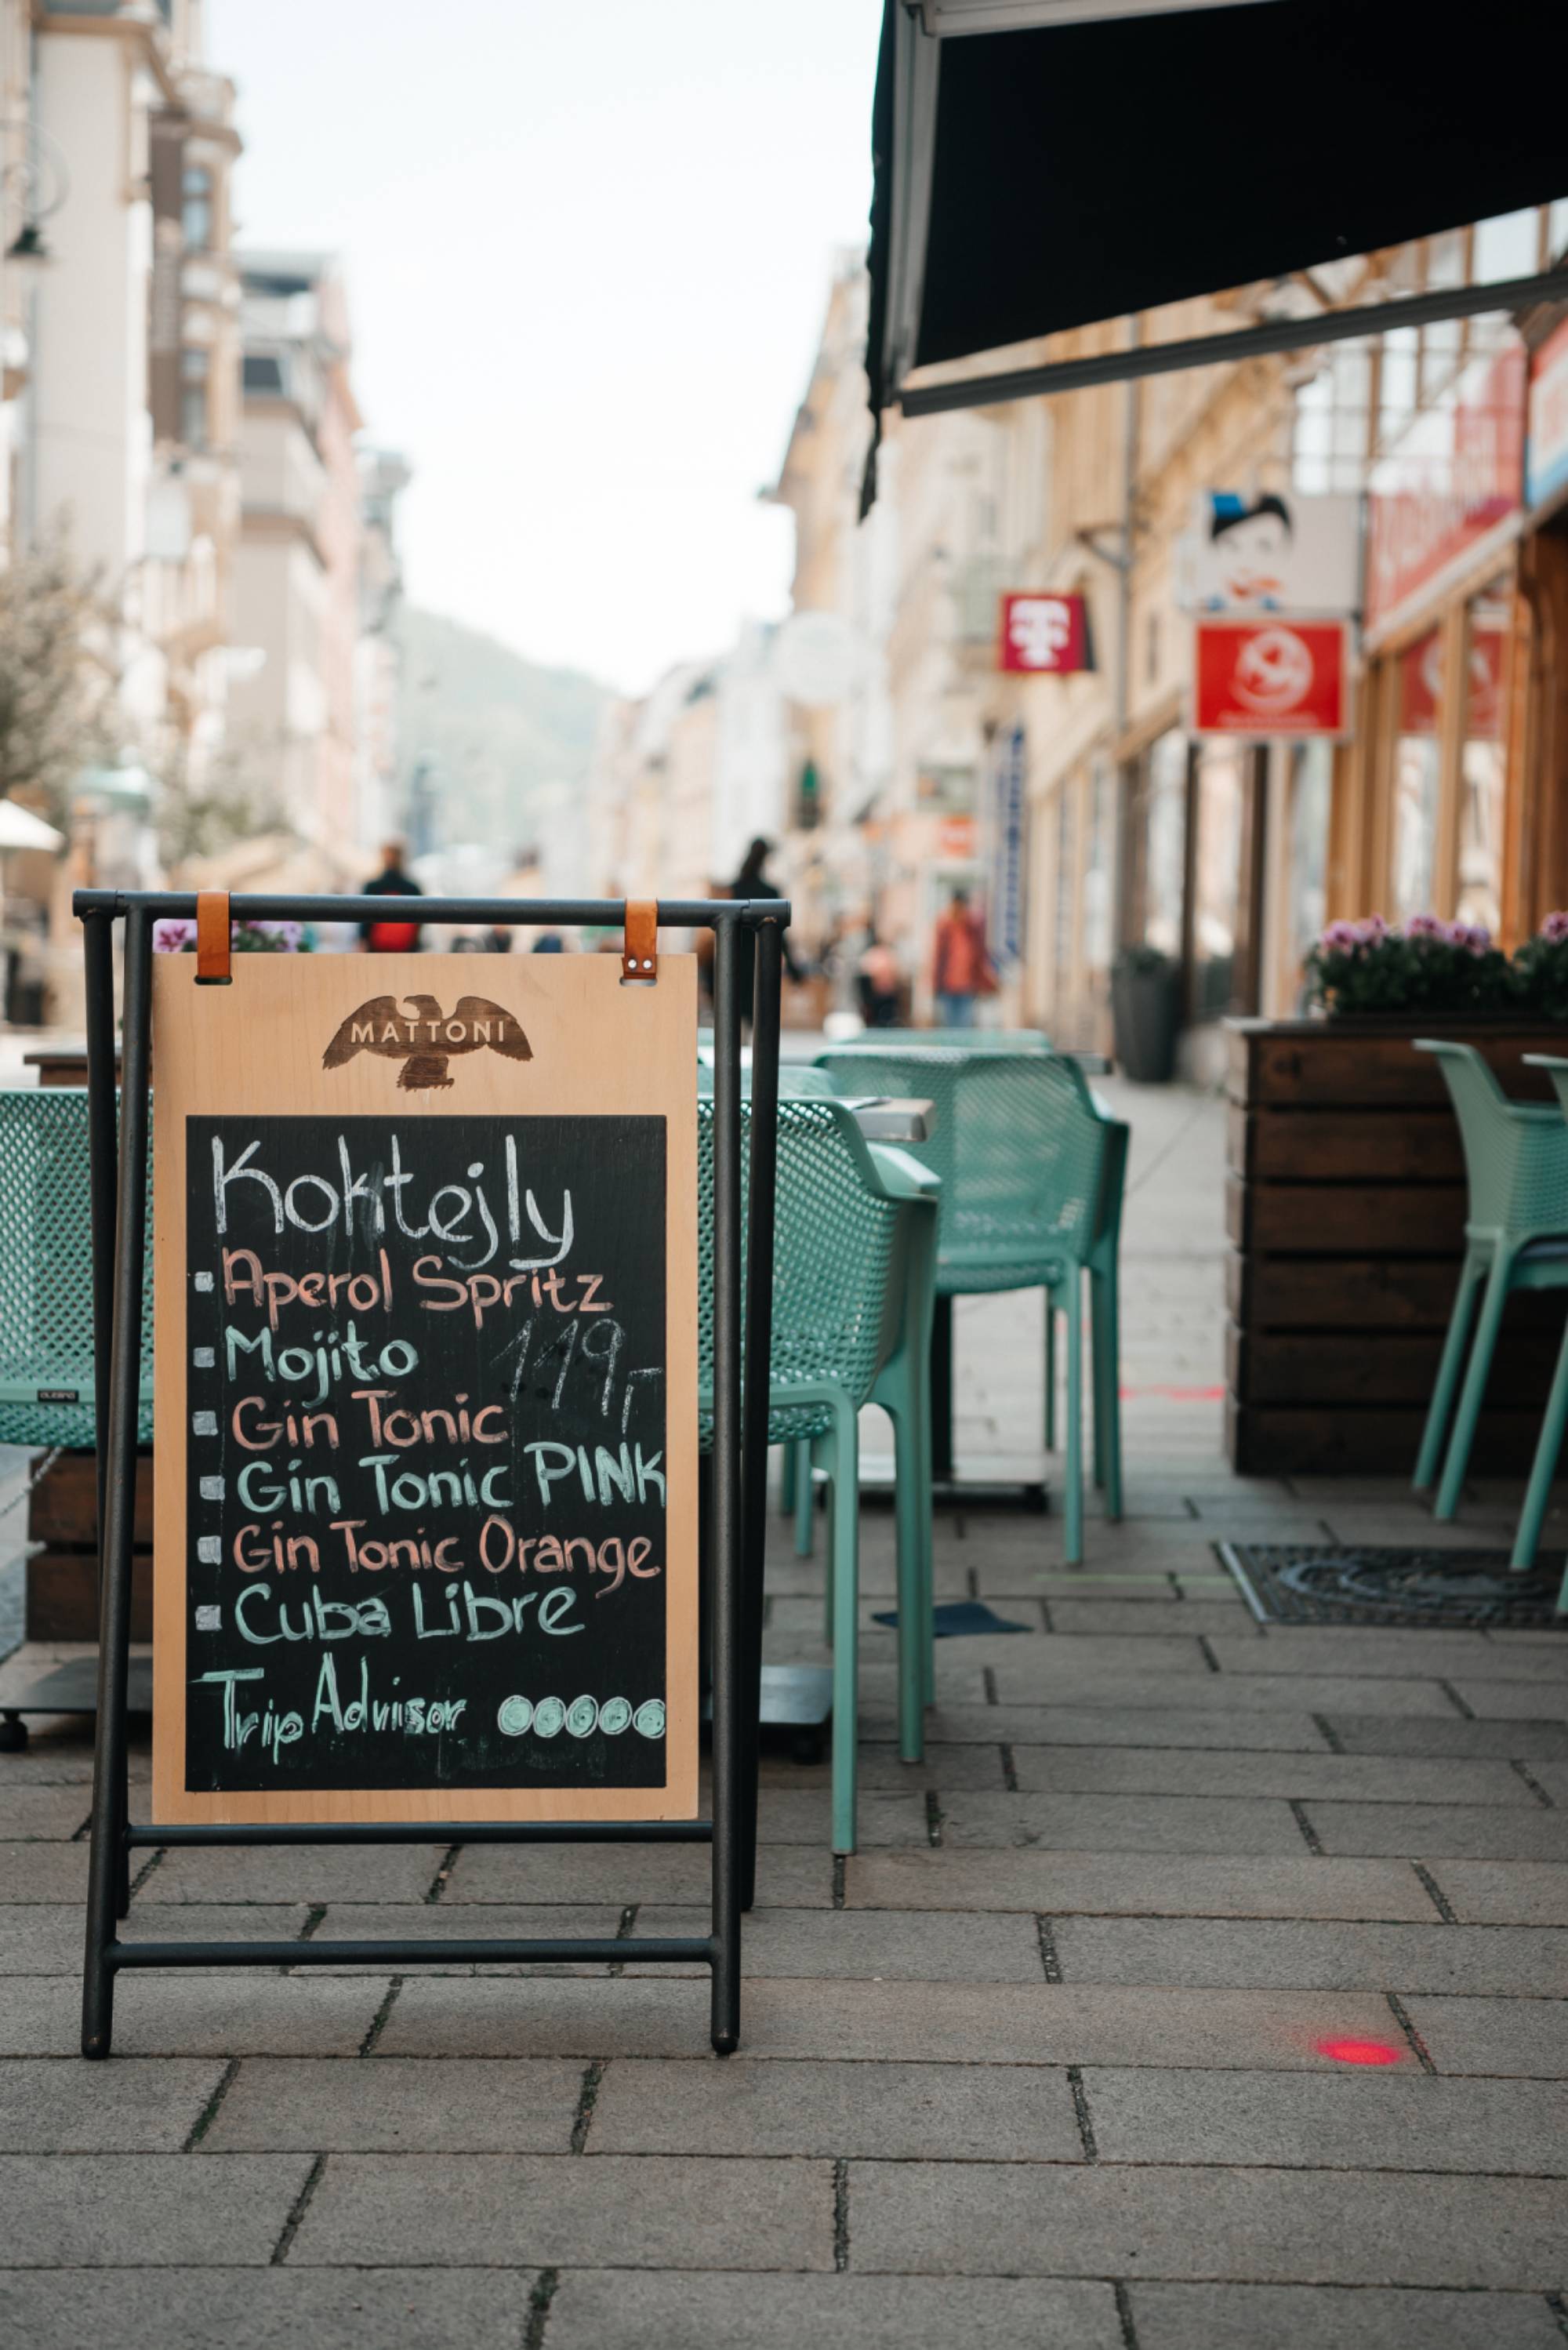 MATTONI
Koktejly
Aperol Spritz
Mojito 119,-
Gin Tonic
Gin Tonic PINK
Gin Tonic Orange
Cuba Libre
Trip Advisor
T